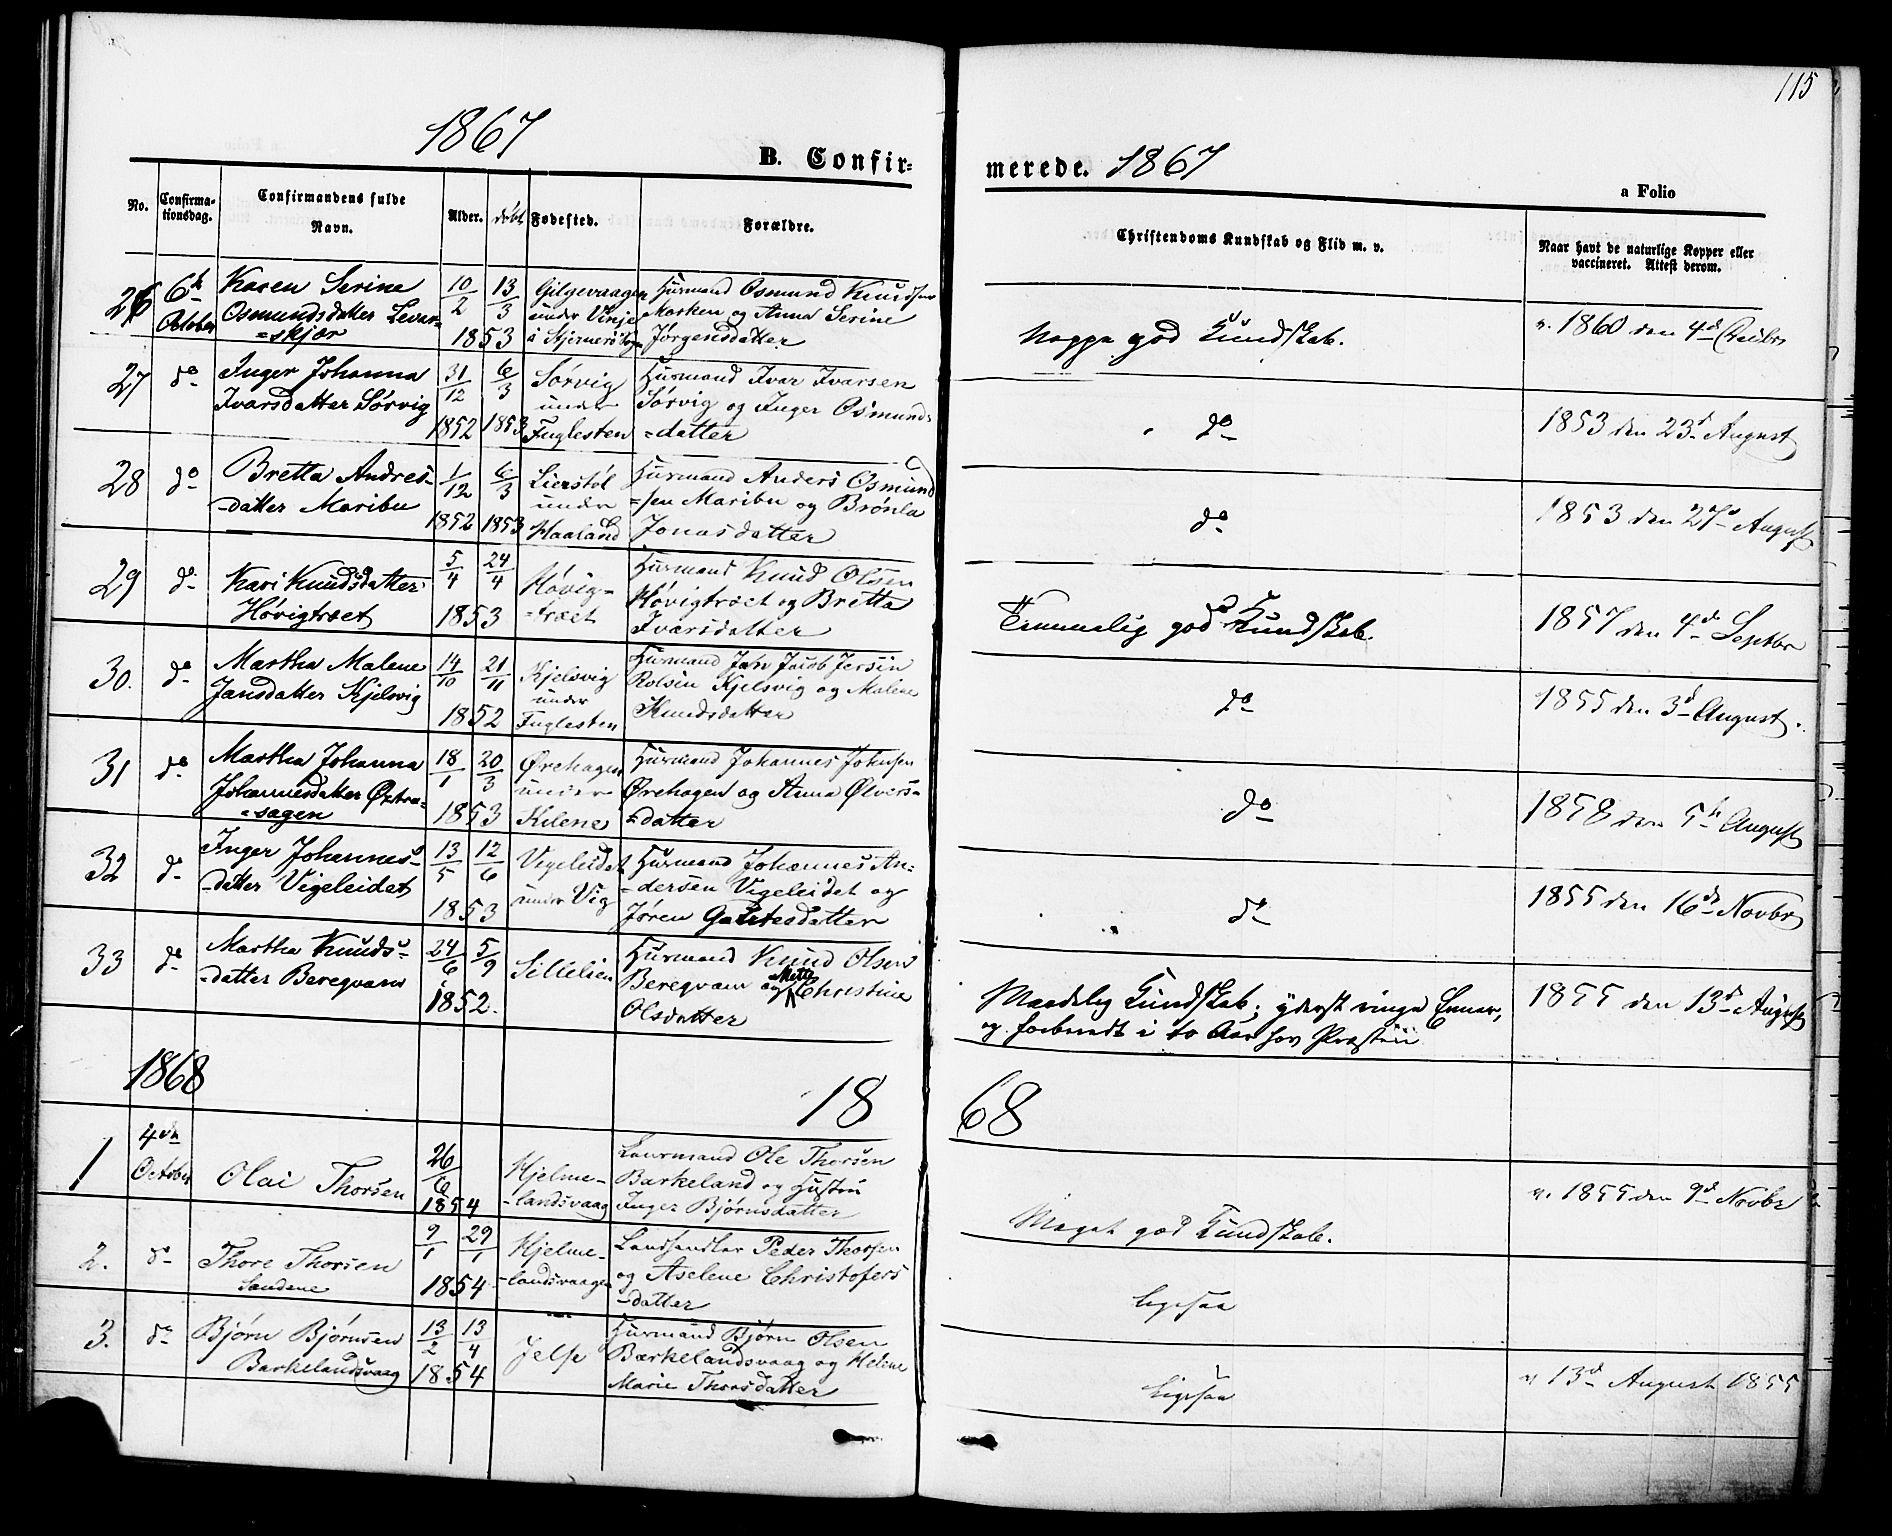 115
1867
B. Confir-
merede. 1867
a Folio
No.
Confirma-
tionsdag.
Confirmandens fulde
Navn.
Alder.
døbt
Fødested.
Forældre.
Christendoms Kundskab og Flid m. v.
Naar havt de naturlige Kopper eller
vaccineret. Attest derom.
26
6te
October
Karen Serine
Osmundsdatter Levar-
=skjær
10/2 13/3
1853
Gilgevaagen
under Vinje
i Skjernerø Sogn
Huusmand Osmund Knudsen
Marken og Anna Serine
Jørgensdatter
Noppe god Kundskab.
v. 1860 den 4d Octbr
27
do
Inger Johanna
Ivarsdatter Sørvig
31/12 6/3
1852 1853
Sørvig
under
Fuglesten
Huusmand Ivar Ivarsen
Sørvig og Inger Osmunds-
=datter
do
1853 den 23d August
28
do
Bretta Andres-
-datter Maribu
1/12 6/3
1852 1853
Lierstøl
under
Haaland
Huusmand Anders Osmund
=sen Maribu og Brønla
Jonasdatter
do
1853 den 27d August
29
do
Kari Knudsdatter
Høvigtræet
5/4 24/4
1853
Høvig-
-træet
Huusmand Knud Olsen
Høvigtræet og Bretta
Ivarsdatter
Temmelig god Kundskab.
1857 den 4d Septbr
30.
do
Martha Malene
Jansdatter Kjelsvig
14/10 21/11
1852
Kjelsvig
under
Fuglesten
Huusmand Jan Jacob Jersin
Rolsen Kjelsvig og Malene
Knudsdatter
do
1855 den 3d August.
31
do
Martha Johanna
Johannesdatter Østra-
=sagen
18/1 20/3
1853
Ørehagen
under
Kilene
Huusmand Johannes Johnsen
Ørehagen og Anna Ølvers-
=datter
do
1858 den 5th August
32
do
Inger Johannes-
-datter Vigeleidet
13/5 12/6
1853
Vigeleidet
under Vig
Huusmand Johannes An-
-dersen Vigeleidet og
Jøren Gautesdatter
do
1855 den 16de Novbr
33
do
Martha Knuds-
-datter Beregvam
24/6 5/9
1852.
Sillelien
Huusmand Knud Olsen
Beregvam og Mette Christine
Olsdatter
Maadelig Kundskab; yderst ringe Evner,
og forberedt i to Aar hos Præsten
1855 den 13d August
1868
18
68
1
4de
October
Olai Thorsen
26/6
1854
Hjelme-
-landsvaag
Leiermand Ole Thorsen
Barkeland og Hustru
Inger Bjørnsdatter
Meget god Kundskab.
v. 1855 den 9d Novbr
2.
do
Thore Thorsen
Sandene
9/1 29/1
1854
Hjelme-
-landsvaagen
Landhandler Peder Thorsen
og Aselene Christofers
-datter
ligesaa
3.
do
Bjørn Bjørnsen
Barkelandsvaag
13/2 13/4
1854
Jelse
Huusmand Bjørn Olsen
Bærkelandsvaag og Helene
Marie Thorsdatter
Ligesaa
v 13d August 1855